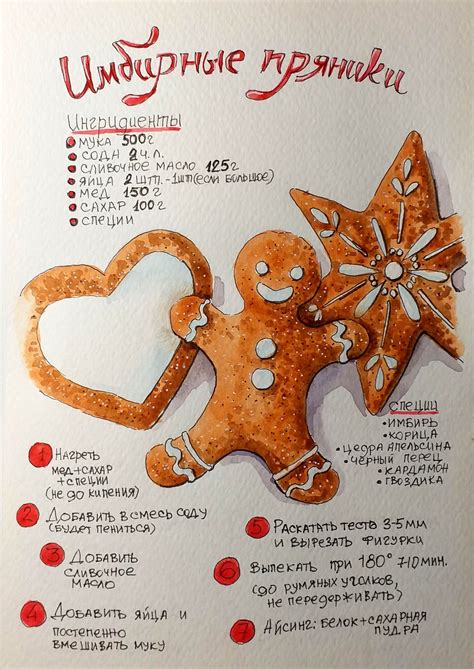 Имбирные пряники
Ингридиенты
Мука 500г
Соды 2 ч.л.
Сливочное масло 125г
Яйца 2 шт.-1шт(если большое)
Мёд 150г
Сахар 100г
Специи
Специи
Имбирь
Корица
Цедра апельсина
Чёрный перец
Кардамон
Гвоздика
1 Нагреть
мед+сахар
+специи
(не до кипения)
2 Добавить в смесь соду
(будет пениться)
3 Добавить
сливочное
масло
4 Добавить яйца и
постепенно
вмешивать муку
5 Раскатать теста 3-5мм
и вырезать фигурки
6 Выпекать при 180° 7-10мин.
(до румяных уголков,
не передерживать)
7 Айсинг: белок+сахарная
пудра